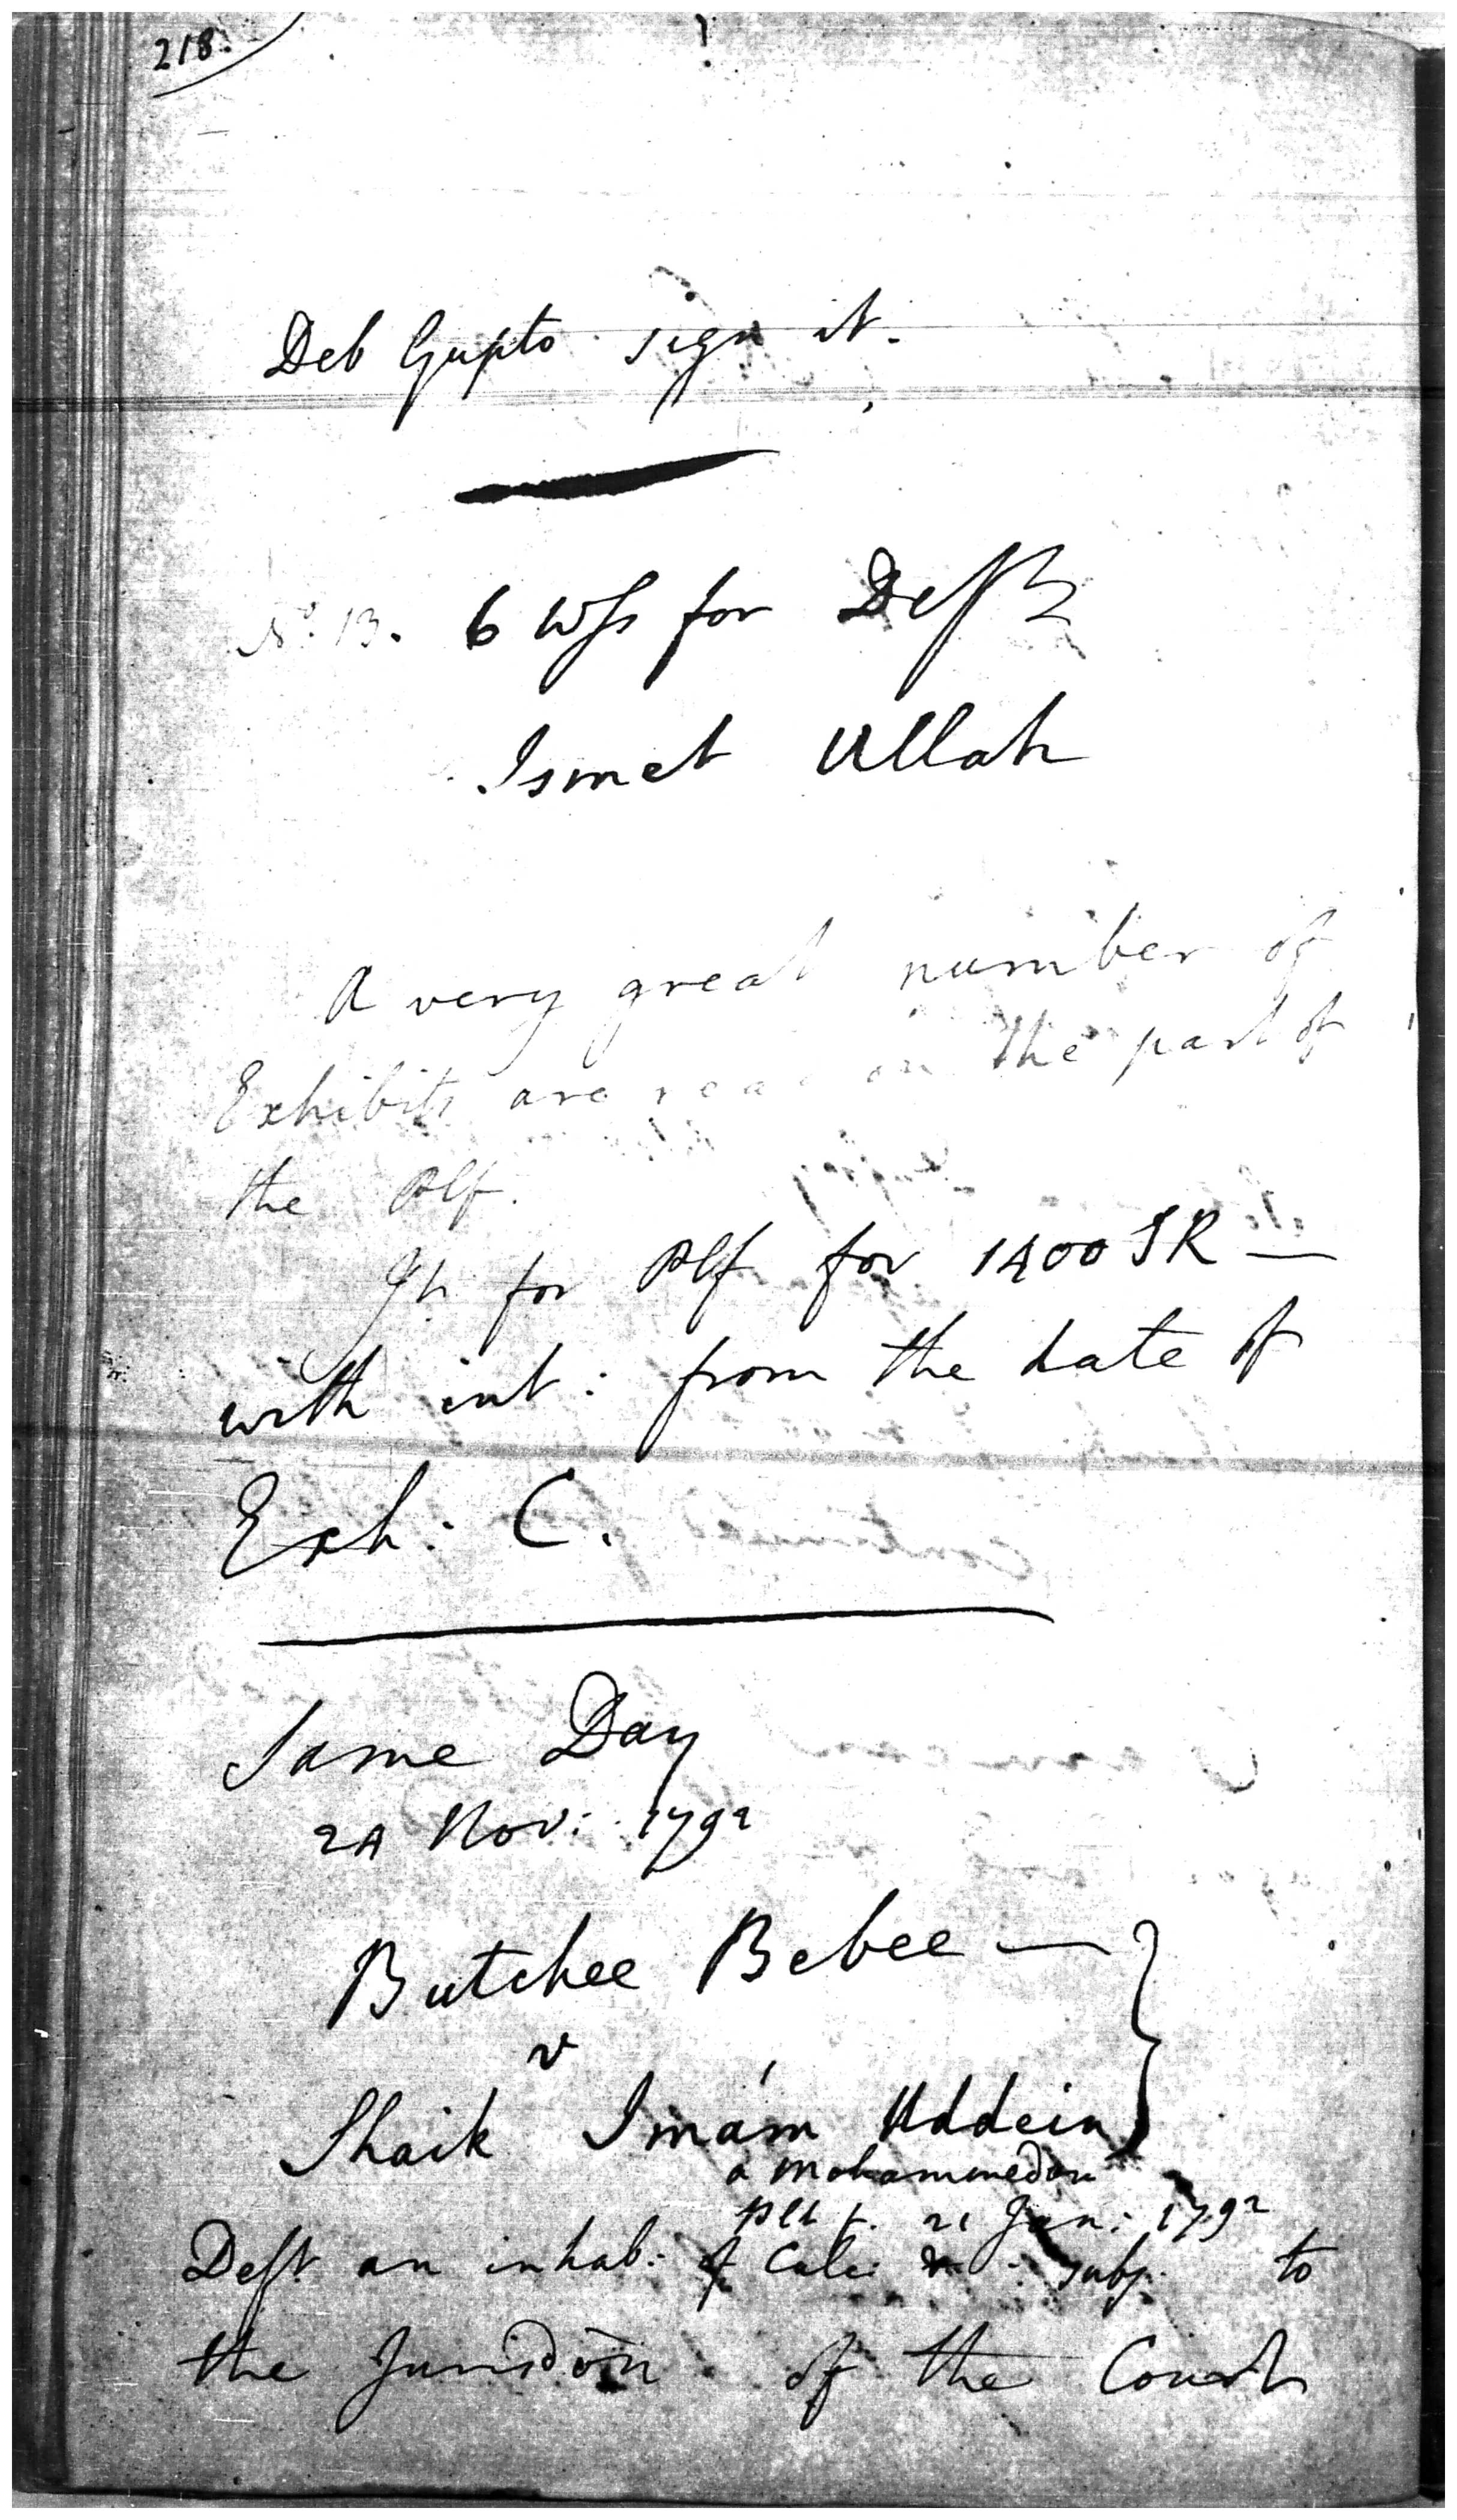 218
Deb Gupto sign it.
No. 13. 6 Wss for Defts
Ismet Ullah
A very great number of
Exhibits are read on the part of
the Plf.
Jt. for Plf for 1400 SR —
with int: from the date of
Exh: C.
Same Day
24 Nov: 1792
Butchee Bebee —
v
Shaik Imám Uddein
a Mohammedan
21 Jan: 1792
Deft. an inhab: of Calc: & subj. to
the Jurisdon of the Court